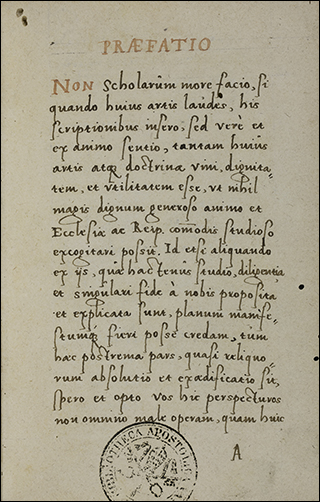 PRÆFATIO
NON Scholarum more facio, si
quando huius artis laudes, his
scriptionibus insero, sed verè et
ex animo sentio, tantam huius
artis atq doctrinæ vim, dignita-
tem, et vtilitatem esse, vt nihil
magis dignum generoso animo et
Ecclesiæ ac Reip. comodis studioso
excogitari possit. Id etsi aliquando
ex ijs, quæ hactenus studio, diligentia
et singulari fide à nobis proposita
et explicata sunt, planum manife-
stumq fieri posse credam, tum
hac postrema pars, quasi reliquo-
rum absolutio et exædificatio sit,
spero et opto vos hic perspecturos
non omnino male operam, quam huic
A
BIBLIOTHECA APOSTOLICA